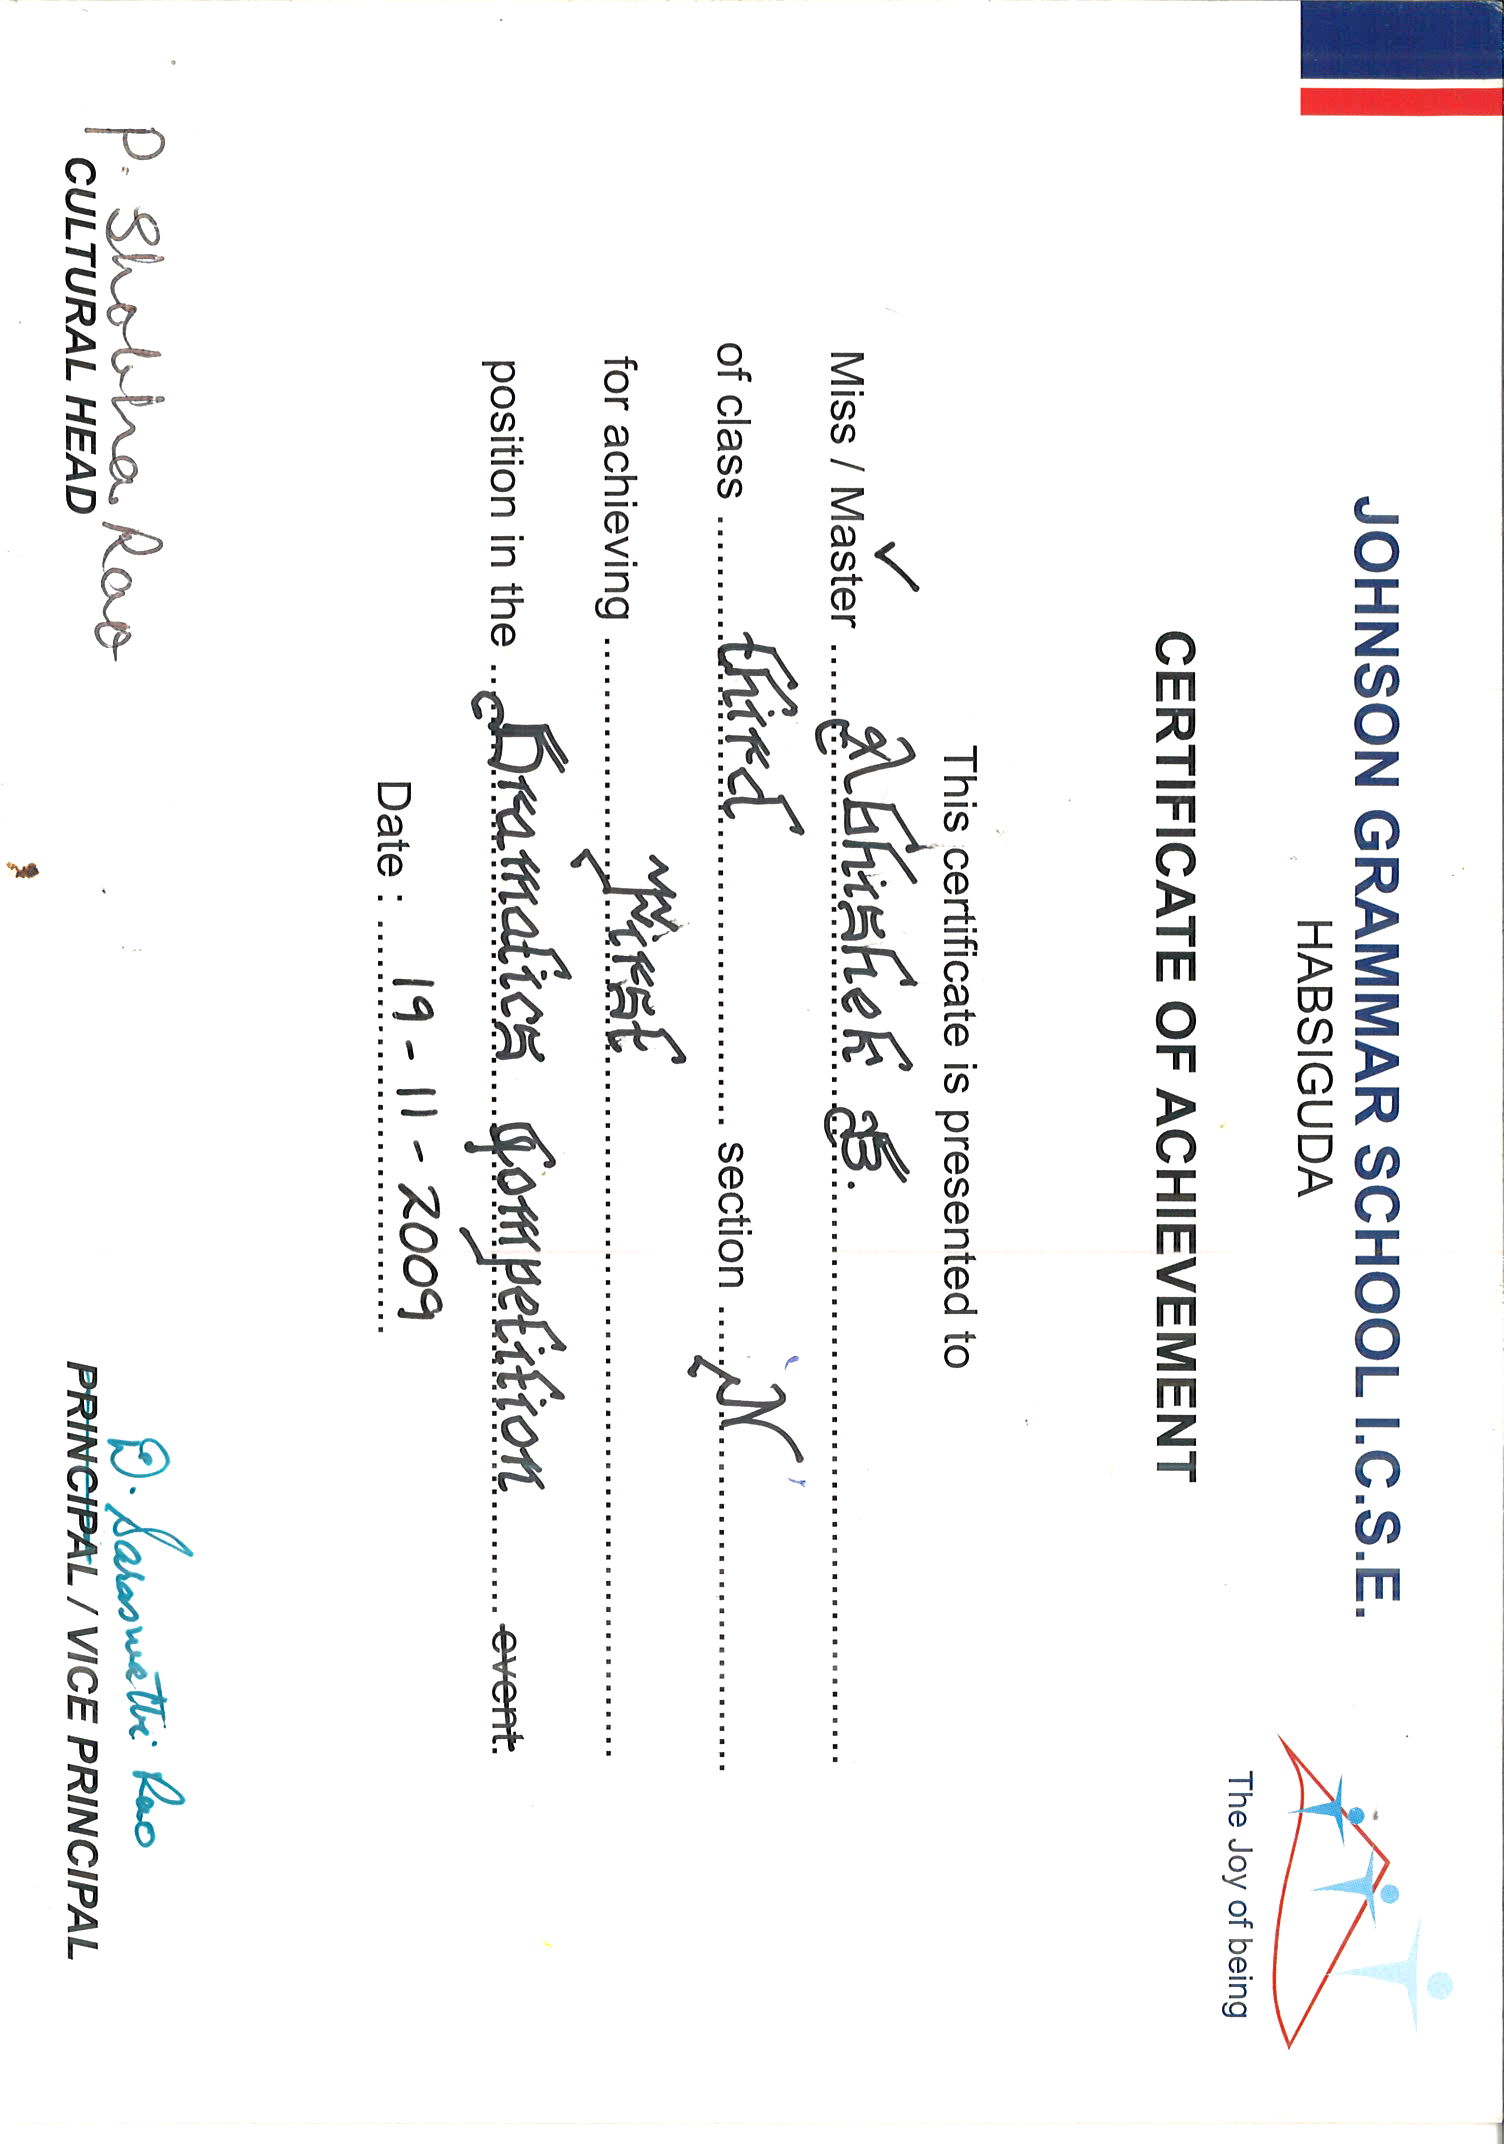 JOHNSON GRAMMAR SCHOOL I.C.S.E.
HABSIGUDA
The Joy of being
CERTIFICATE OF ACHIEVEMENT
This certificate is presented to
Miss / Master Abhishek B.
of class third section 'N'
for achieving First
position in the Dramatics Competition event.
Date : 19-11-2009
P. Shobha Rao
CULTURAL HEAD
D. Saraswathi Rao
PRINCIPAL / VICE PRINCIPAL